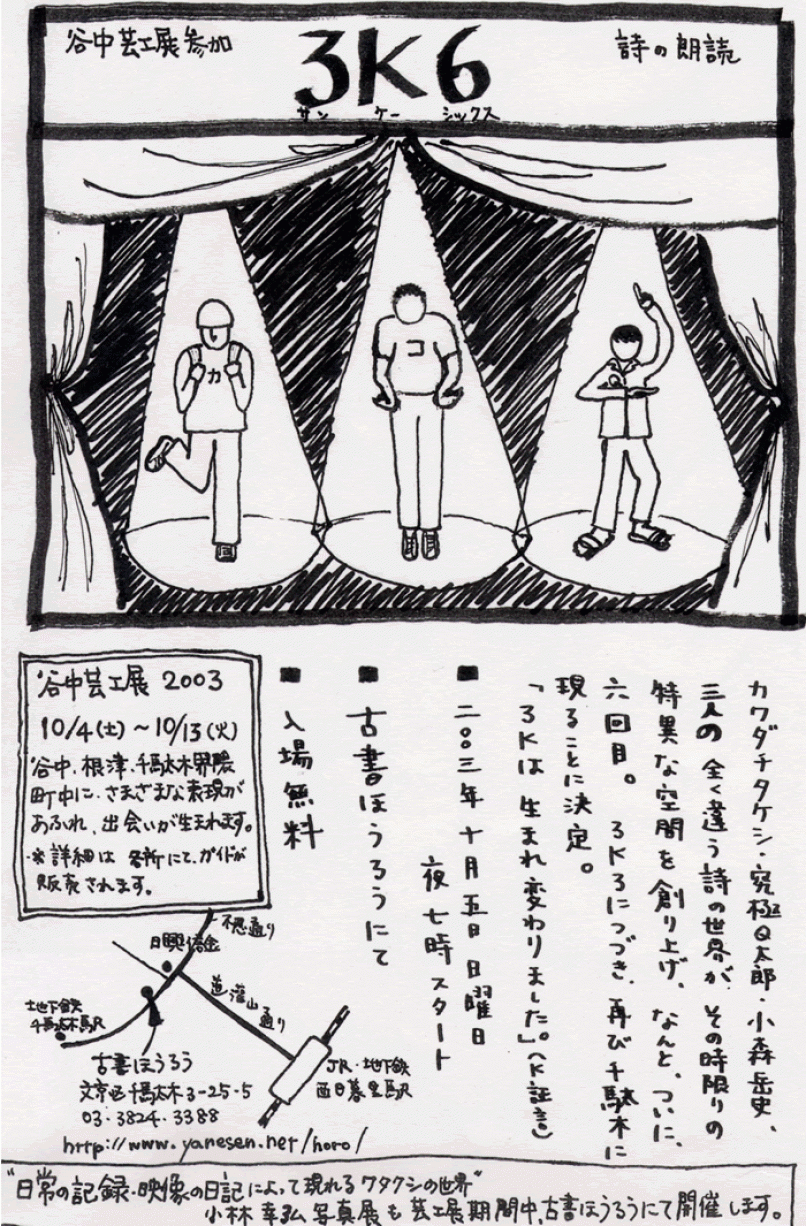 谷中芸工展参加
3K6
サン ケー シックス
詩の朗読
カ
コ
カワグチタケシ・究極Q太郎・小森岳史、
三人の全く違う詩の世界が、その時限りの
特異な空間を創り上げ、なんと、ついに、
六回目。 3K3につづき、再び千駄木に
現ることに決定。
「3Kは生まれ変わりました。」(K証言)
■ 二〇〇三年十月五日日曜日
夜七時スタート
■ 古書ほうろうにて
■ 入場無料
谷中芸工展 2003
10/4(土)~10/13(火)
谷中、根津、千駄木界隈
町中に、さまざまな表現が
あふれ、出会いが生まれます。
※詳細は各所にて、ガイドが
販売されます。
不忍通り
日興信金
道灌山通り
地下鉄
千駄木駅
JR・地下鉄
西日暮里駅
古書ほうろう
文京区千駄木3-25-5
03-3824-3388
http://www.yanesen.net/horo/
"日常の記録・映像の日記によって現れるワタクシの世界"
小林幸弘写真展も芸工展期間中、古書ほうろうにて開催します。